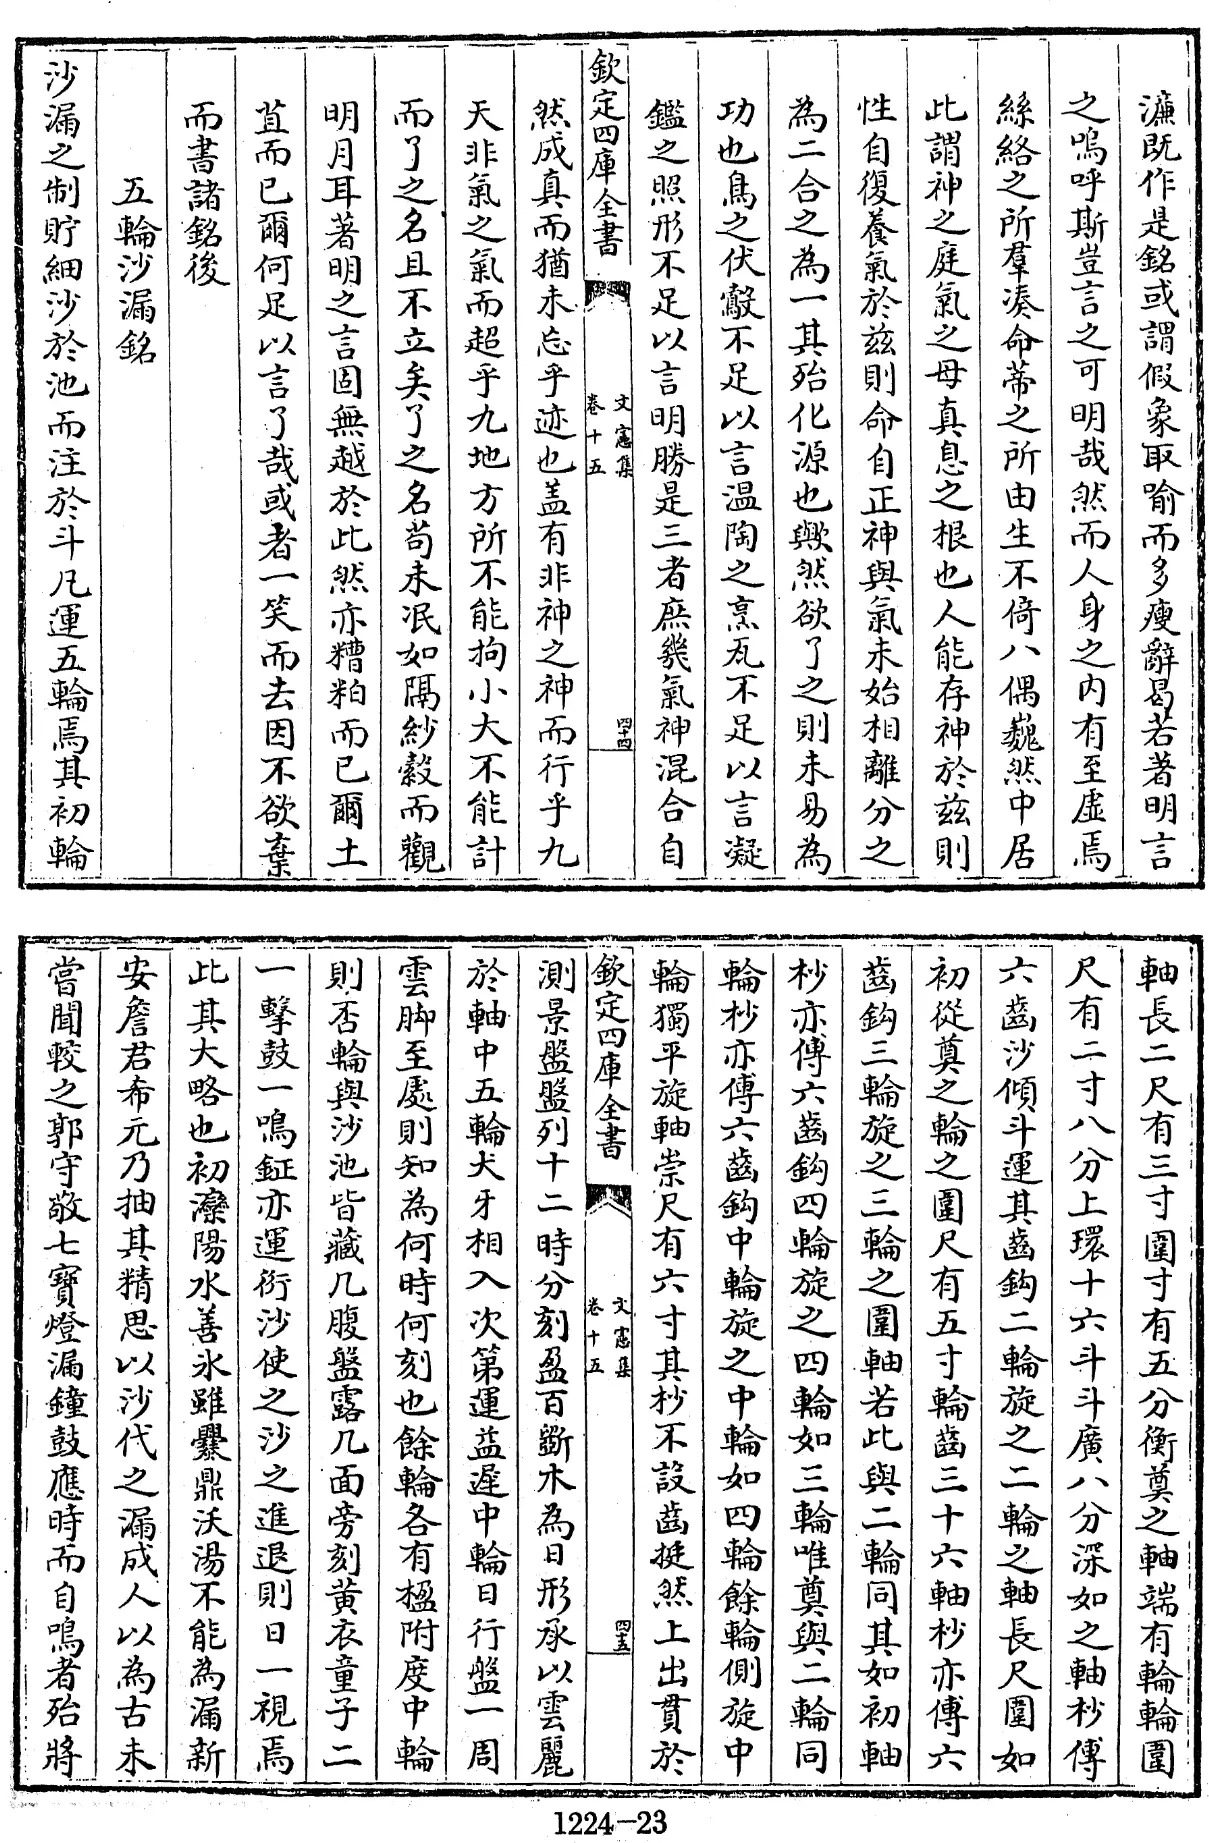 濂既作是銘或謂假象取喻而多瘦辭曷若著明言
之嗚呼斯豈言之可明哉然而人身之内有至虛焉
絲絡之所羣湊命蒂之所由生不倚八偶巍然中居
此謂神之庭氣之母真息之根也人能存神於兹則
性自復養氣於兹則命自正神與氣未始相離分之
為二合之為一其殆化源也歟然欲了之則未易為
功也鳥之伏鷇不足以言温陶之烹瓦不足以言凝
鑑之照形不足以言明勝是三者庶幾氣神混合自
欽定四庫全書
文憲集
卷十五
四十四
然成真而猶未忘乎迹也盖有非神之神而行乎九
天非氣之氣而超乎九地方所不能拘小大不能計
而了之名且不立矣了之名苟未泯如隔紗縠而觀
明月耳著明之言固無越於此然亦糟粕而已爾土
苴而已爾何足以言了哉或者一笑而去因不欲棄
而書諸銘後
五輪沙漏銘
沙漏之制貯細沙於池而注於斗凡運五輪焉其初輪
軸長二尺有三寸圍寸有五分衡奠之軸端有輪輪圍
尺有二寸八分上環十六斗斗廣八分深如之軸杪傅
六齒沙傾斗運其齒鈎二輪旋之二輪之軸長尺圍如
初從奠之輪之圍尺有五寸輪齒三十六軸杪亦傅六
齒鈎三輪旋之三輪之圍軸若此與二輪同其如初軸
杪亦傅六齒鈎四輪旋之四輪如三輪唯奠與二輪同
輪杪亦傅六齒鈎中輪旋之中輪如四輪餘輪側旋中
輪獨平旋軸崇尺有六寸其杪不設齒挺然上出貫於
欽定四庫全書
文憲集
卷十五
四十五
測景盤盤列十二時分刻盈百斵木為日形承以雲麗
於軸中五輪犬牙相入次第運益遲中輪日行盤一周
雲脚至處則知為何時何刻也餘輪各有楹附度中輪
則否輪與沙池皆藏几腹盤露几面旁刻黄衣童子二
一擊鼓一鳴鉦亦運衍沙使之沙之進退則日一視焉
此其大略也初灤陽水善氷雖爨鼎沃湯不能為漏新
安詹君希元乃抽其精思以沙代之漏成人以為古未
嘗聞較之郭守敬七寶燈漏鐘鼓應時而自鳴者殆將
1224—23